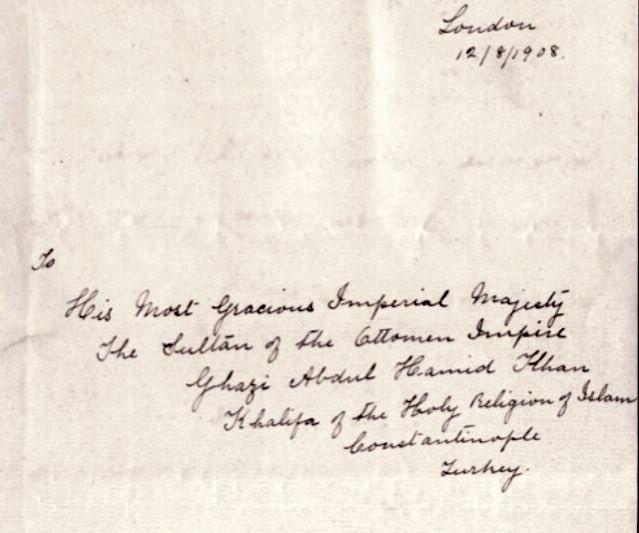 London
12/8/1908.
To
His Most Gracious Imperial Majesty
The Sultan of the Ottomen Impire
Ghazi Abdul Hamid Khan
Khalifa of the Holy Religion of Islam
Constantinople
Turkey.